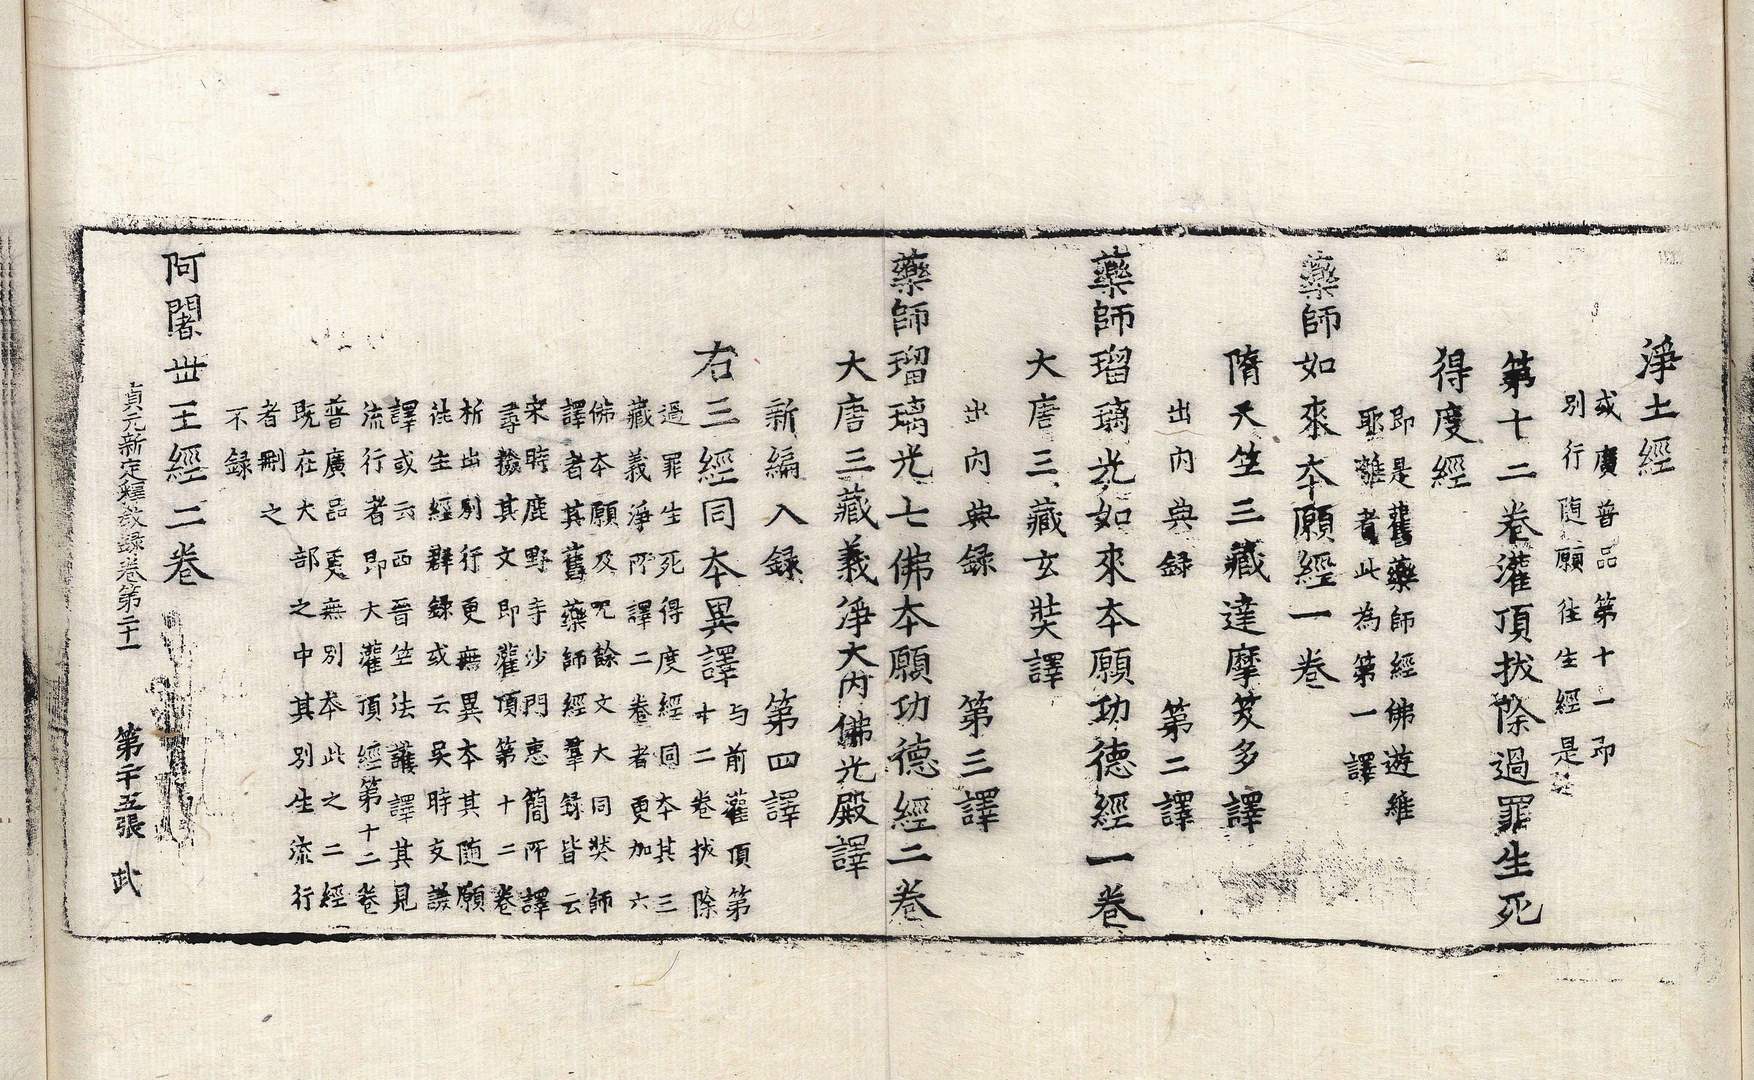 淨土經
或廣普品第十一即
別行随願往生經是
第十二卷灌頂拔除過罪生死
得度經
即是舊藥師經佛遊維
耶離者此為第一譯
藥師如來本願經一卷
隋天竺三藏達摩笈多譯
出内典録　第二譯
藥師瑠璃光如來本願功德經一卷
大唐三藏玄奘譯
出内典録　第三譯
藥師瑠璃光七佛本願功德經二卷
大唐三藏義淨大内佛光殿譯
新編入録　第四譯
右三經同本異譯
与前灌頂第
十二卷拔除
過罪生死得度經同本其三
藏義淨所譯二卷者更加六
佛本願及呪餘文大同奘師
譯者其舊藥師經羣録皆云
宋時鹿野寺沙門惠簡所譯
尋撿其文即灌頂第十二卷
析出別行更無異本其随願
往生經群録或云吴時支謙
譯或云西晉竺法護譯其見
流行者即大灌頂經第十二卷
普廣品更無別本此之二經
既在大部之中其別生流行
者刪之
不録
阿闍世王經二卷
貞元新定釋教録卷第二十一　第二十五張　武